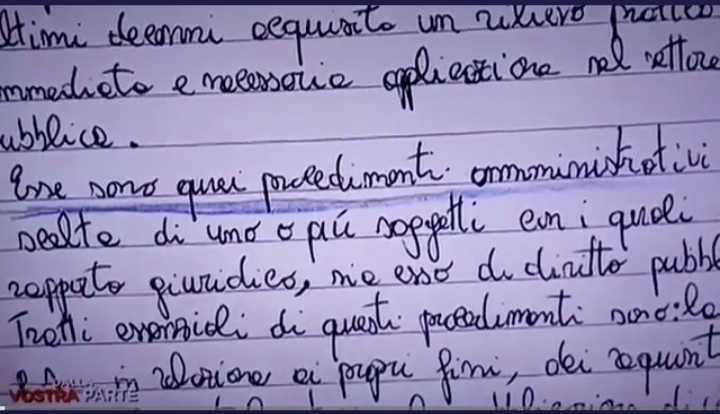 ltimi decenni acquisito un rilievo pratico
mmediato e necessario applicazione nel settore
ubblico.
Esse sono quei procedimenti amministrativi
scelta di uno o più soggetti con i quali
rapporto giuridico, sia esso di diritto pubbl
Tratti essenziali di questi procedimenti sono: la
in relazione ai propri fini, dei requisit
DALLA
VOSTRA PARTE